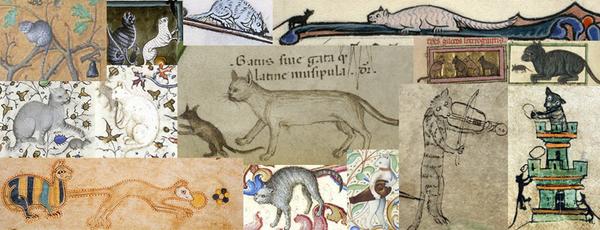 Gatus siue gata q̄
latine musipula · dr̄ ·